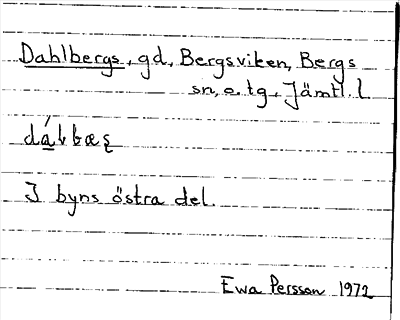 Dahlbergs, gd, Bergsviken, Bergs
sn, o. tg, Jämtl. l
I byns östra del.
Ewa Persson 1972